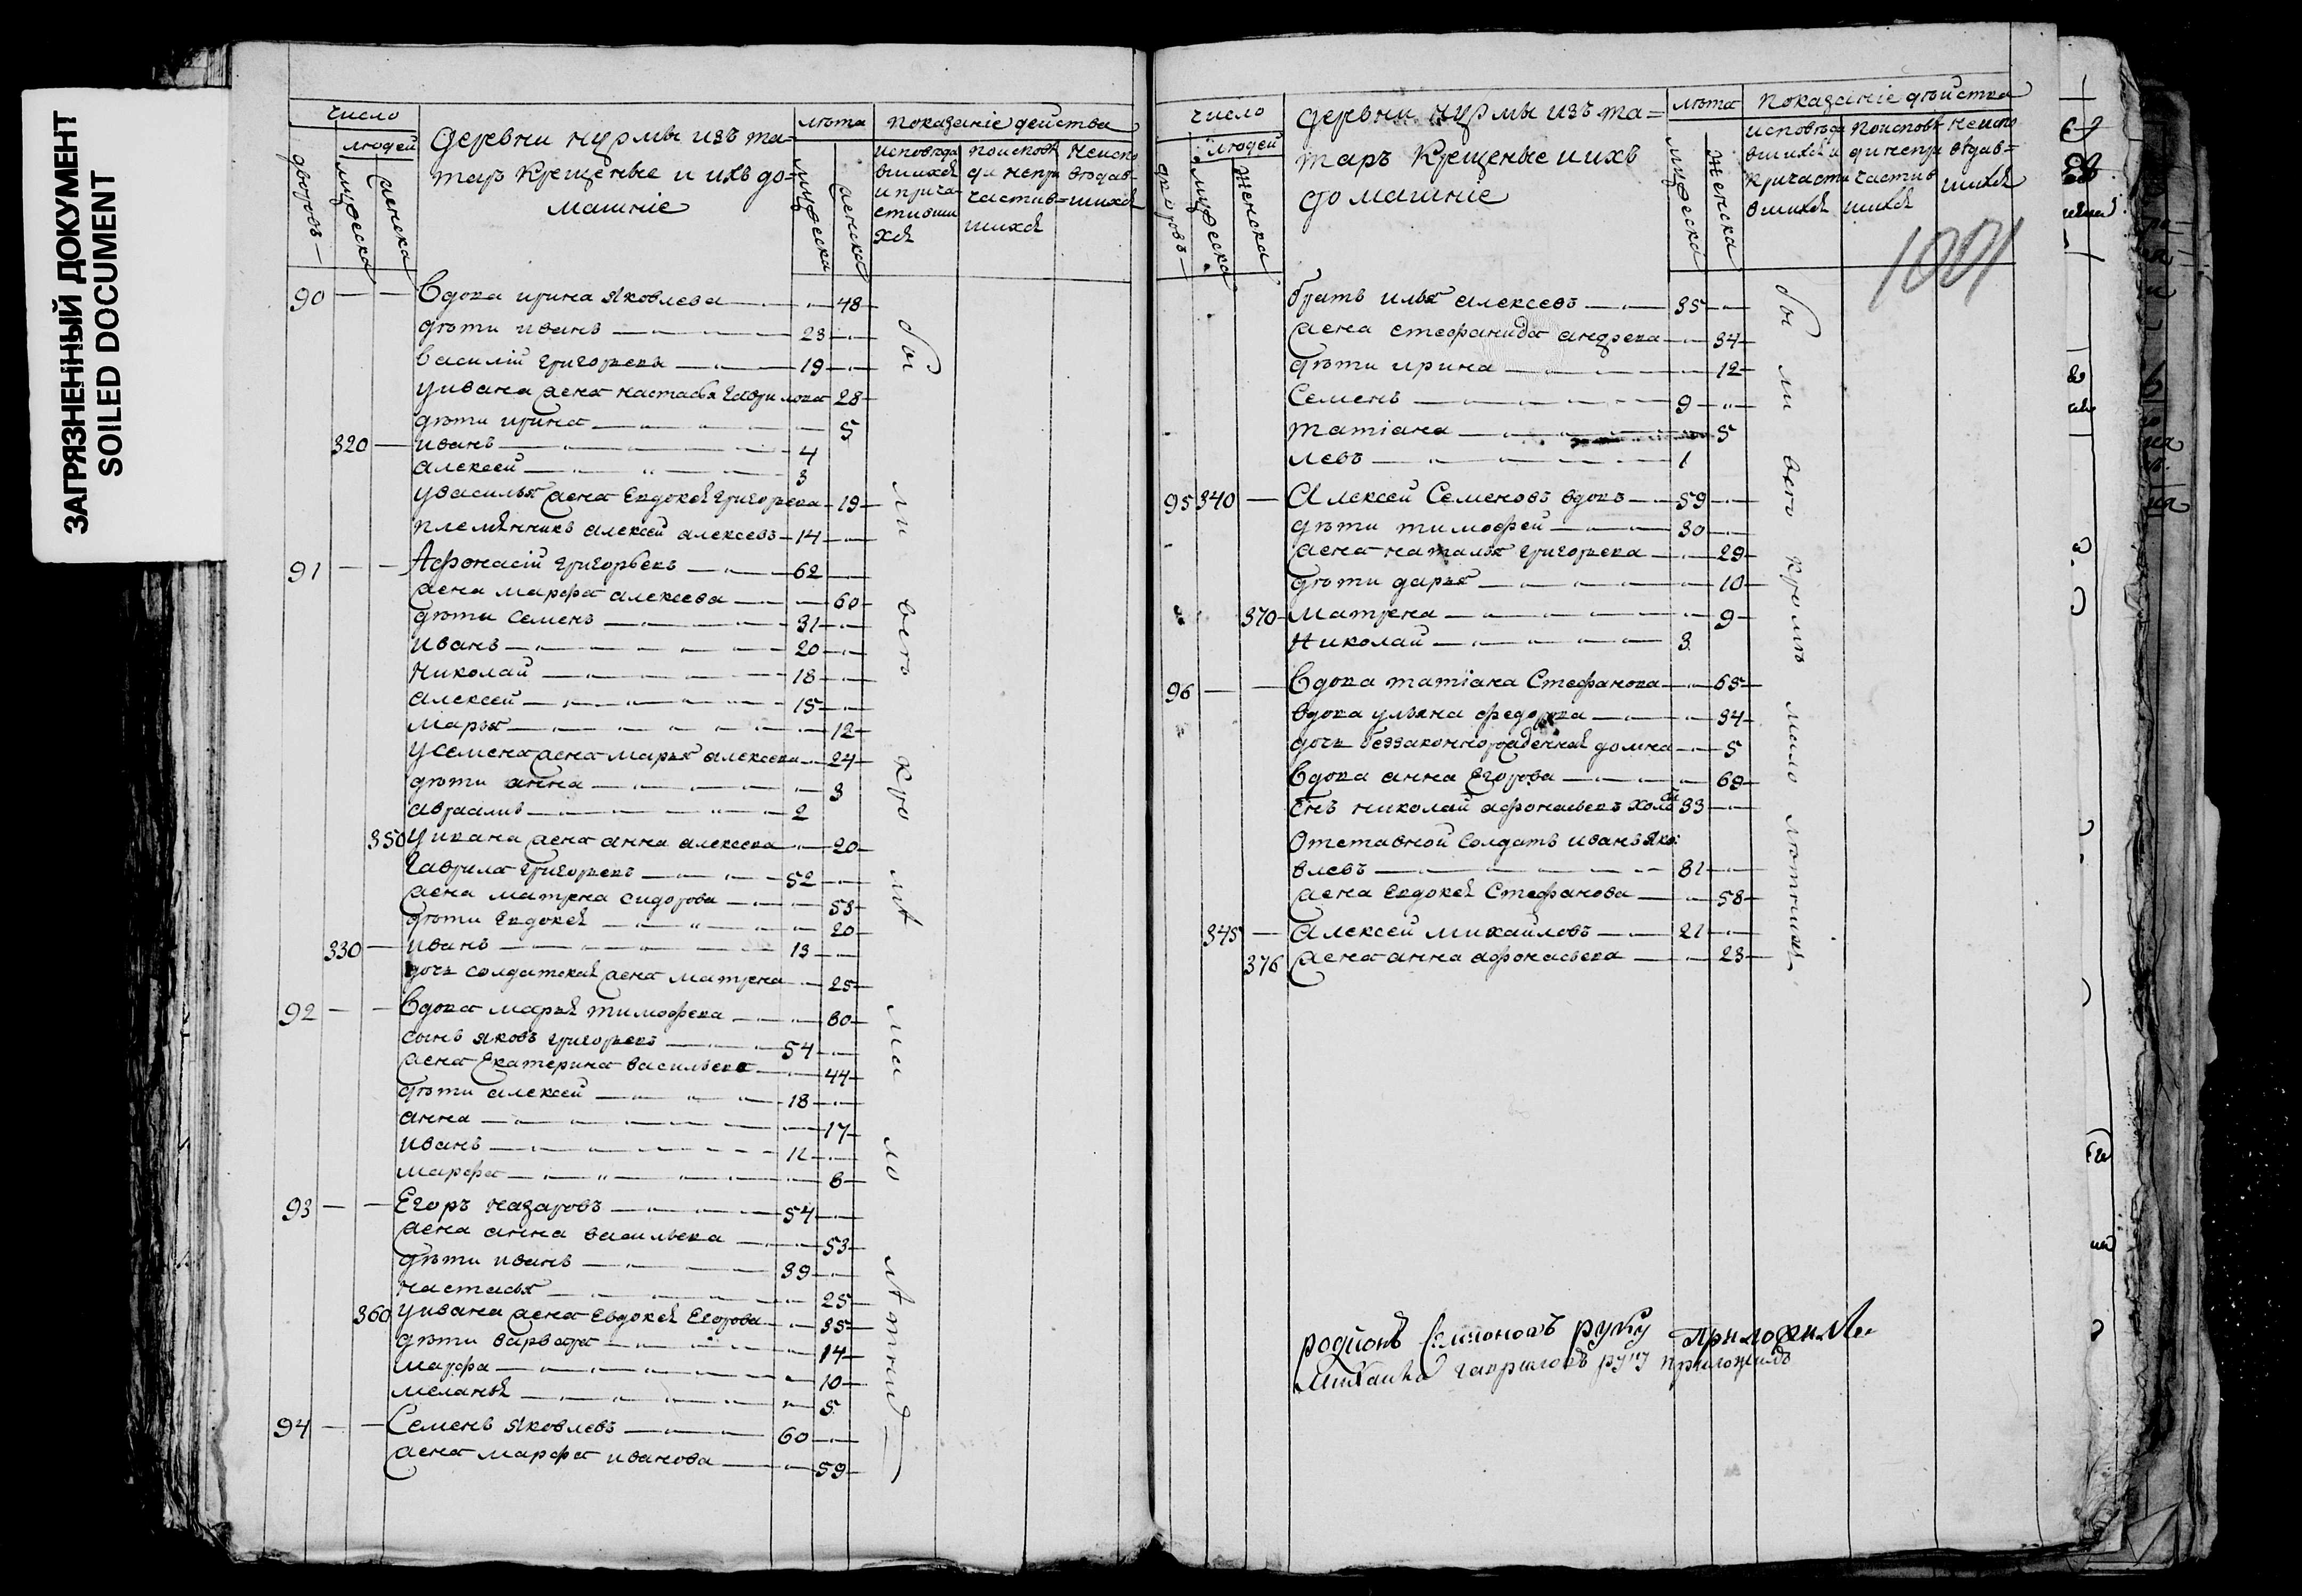 ЗАГРЯЗНЕННЫЙ ДОКУМЕНТ
SOILED DOCUMENT
число
людей
дворовъ
мужеска
женска
деревни нурмы изъ та=
таръ крещеные и ихъ до=
машніе
лѣта
мужеска
женска
показаніе действа
исповѣда
вшихся
и прича=
стивши
хся
поисповѣ
ди непри
частив=
шихся
неиспо
вѣдав=
шихся
90 — — Вдова ирина яковлева — 48
дѣти иванъ — 23
василій григорьевы — 19
у ивана жена настасья гаврилова 28
дѣти ирина — 5
320 — иванъ — 4
алексей — 3
у василья жена Евдокея григорьева — 19
племянникъ алексей алексеевъ — 14
91 — — Афонасій григорьевъ — 62
жена марфа алексеева — 60
дѣти семенъ — 31
иванъ — 20
николай — 18
алексей — 15
марья — 12
у семена жена марья алексеева — 24
дѣти анна — 3
авраамъ — 2
350 у ивана жена анна алексеева — 20
гаврила григорьевъ — 52
жена матрена сидорова — 53
дѣти Евдокея — 20
330 — иванъ — 13
дочь солдатская жена матрена — 25
92 — — Вдова марья тимофеева — 80
сынъ яковъ григорьевъ — 54
жена Екатерина васильева — 44
дѣти алексей — 18
анна — 17
иванъ — 12
марфа — 8
93 — — Егоръ назаровъ — 54
жена анна васильева — 53
дѣти иванъ — 39
настасья — 25
360 у ивана жена Евдокея Егорова — 35
дѣти варвара — 14
марфа — 10
меланья — 5
94 — — Семенъ яковлевъ — 60
жена марфа иванова — 59
бы ли всѣ кро мѣ ма ло лѣтнихъ
число
людей
дворовъ
мужеска
женска
деревни нурмы изъ та=
таръ крещеные и ихъ
домашніе
лѣта
мужеска
женска
показаніе дѣйства
исповѣда
вшихся и
причасти
вшихся
поисповѣ
ди непри
частив
шихся
неиспо
вѣдав=
шихся
1001
братъ илья алексеевъ — 35
жена стефанида андреева — 34
дѣти ирина — 12
Семенъ — 9
татіана — 5
левъ — 1
95 340 — Алексей Семеновъ вдовъ — 59
дѣти тимофей — 30
жена наталья григорьева — 29
дѣти дарья — 10
370 матрена — 9
николай — 3
96 — — Вдова татіана Стефанова — 65
вдова ульяна федорова — 34
дочь беззаконнорожденная домна — 5
Вдова анна Егорова — 69
снъ николай афонасьевъ холо 33
Отставной солдатъ иванъ яко
влевъ — 81
жена Евдокея Стефанова — 58
345 — Алексей михайловъ — 21
376 жена анна афонасьева — 23
бы ли всѣ кромѣ мало лѣтнихъ
родионъ Симионовъ руку приложилъ
Михаила гавриловъ руку приложилъ